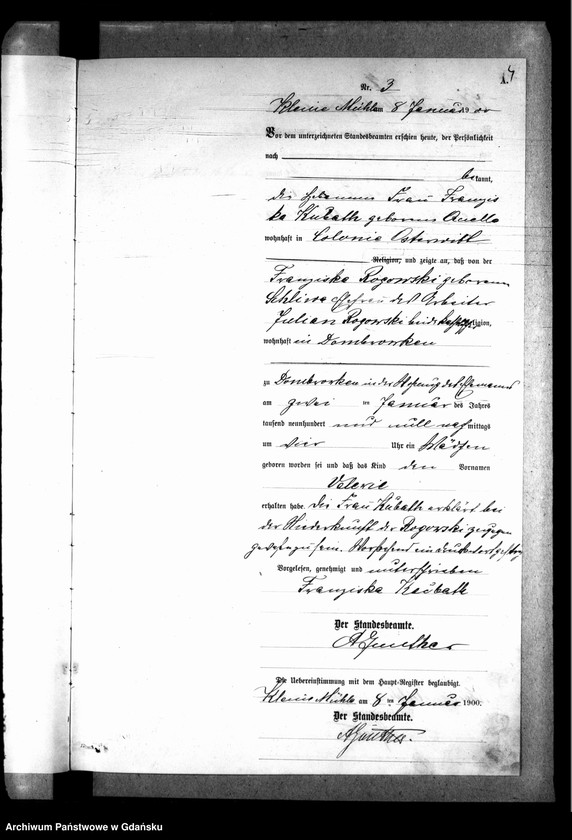 A.
Nr. 3
Kleine Mühle am 8 Januar 1900
Vor dem unterzeichneten Standesbeamten erschien heute, der Persönlichkeit
nach
bekannt,
die Hebamme Frau Franzis
ka Kubath geborene
wohnhaft in Colonie Osterwitt
Religion, und zeigte an, daß von der
Franziska Rogowski geborenen
Schliwa Ehefrau des Arbeiter
Julian Rogowski beide kathol. Religion,
wohnhaft in Dombrowken
zu Dombrowken in der Wohnung des Ehemanns
am zwei ten Januar des Jahres
tausend neunhundert und null nachmittags
um vier Uhr ein Mädchen
geboren worden sei und daß das Kind den Vornamen
Valerie
erhalten habe. Die Frau Kubath erklärt bei
der Niederkunft der Rogowski zugegen
gewesen zu sein. Vorstehend ein Druckwort gestrichen
Vorgelesen, genehmigt und unterschrieben
Franziska Kubath
Der Standesbeamte.
A Guenther
Die Uebereinstimmung mit dem Haupt-Register beglaubigt.
Kleine Mühle am 8 ten Januar 1900.
Der Standesbeamte.
A Günther.
Archiwum Państwowe w Gdańsku